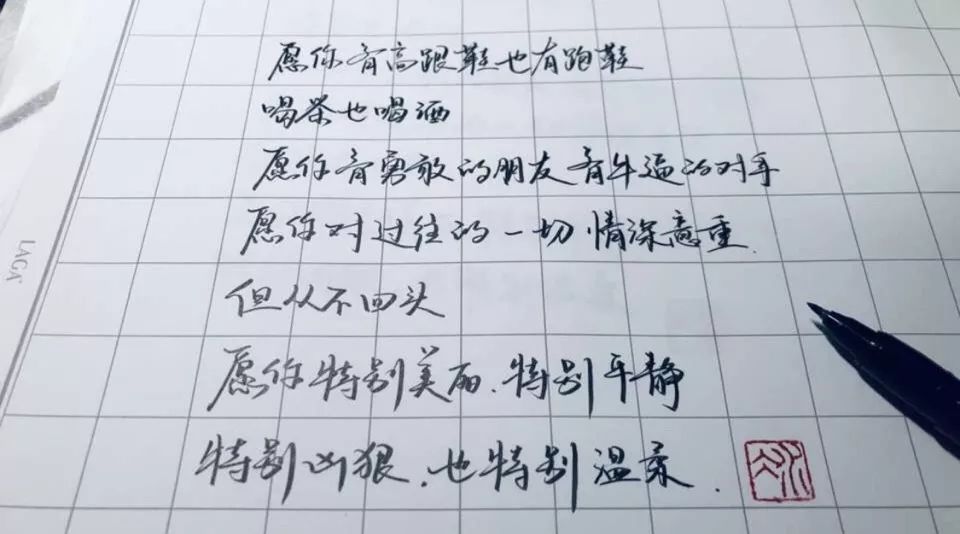 愿你有高跟鞋也有跑鞋
喝茶也喝酒
愿你有勇敢的朋友有牛逼的对手
愿你对过往的一切情深意重
但从不回头
愿你特别美丽.特别平静
特别凶狠.也特别温柔.
LAGA